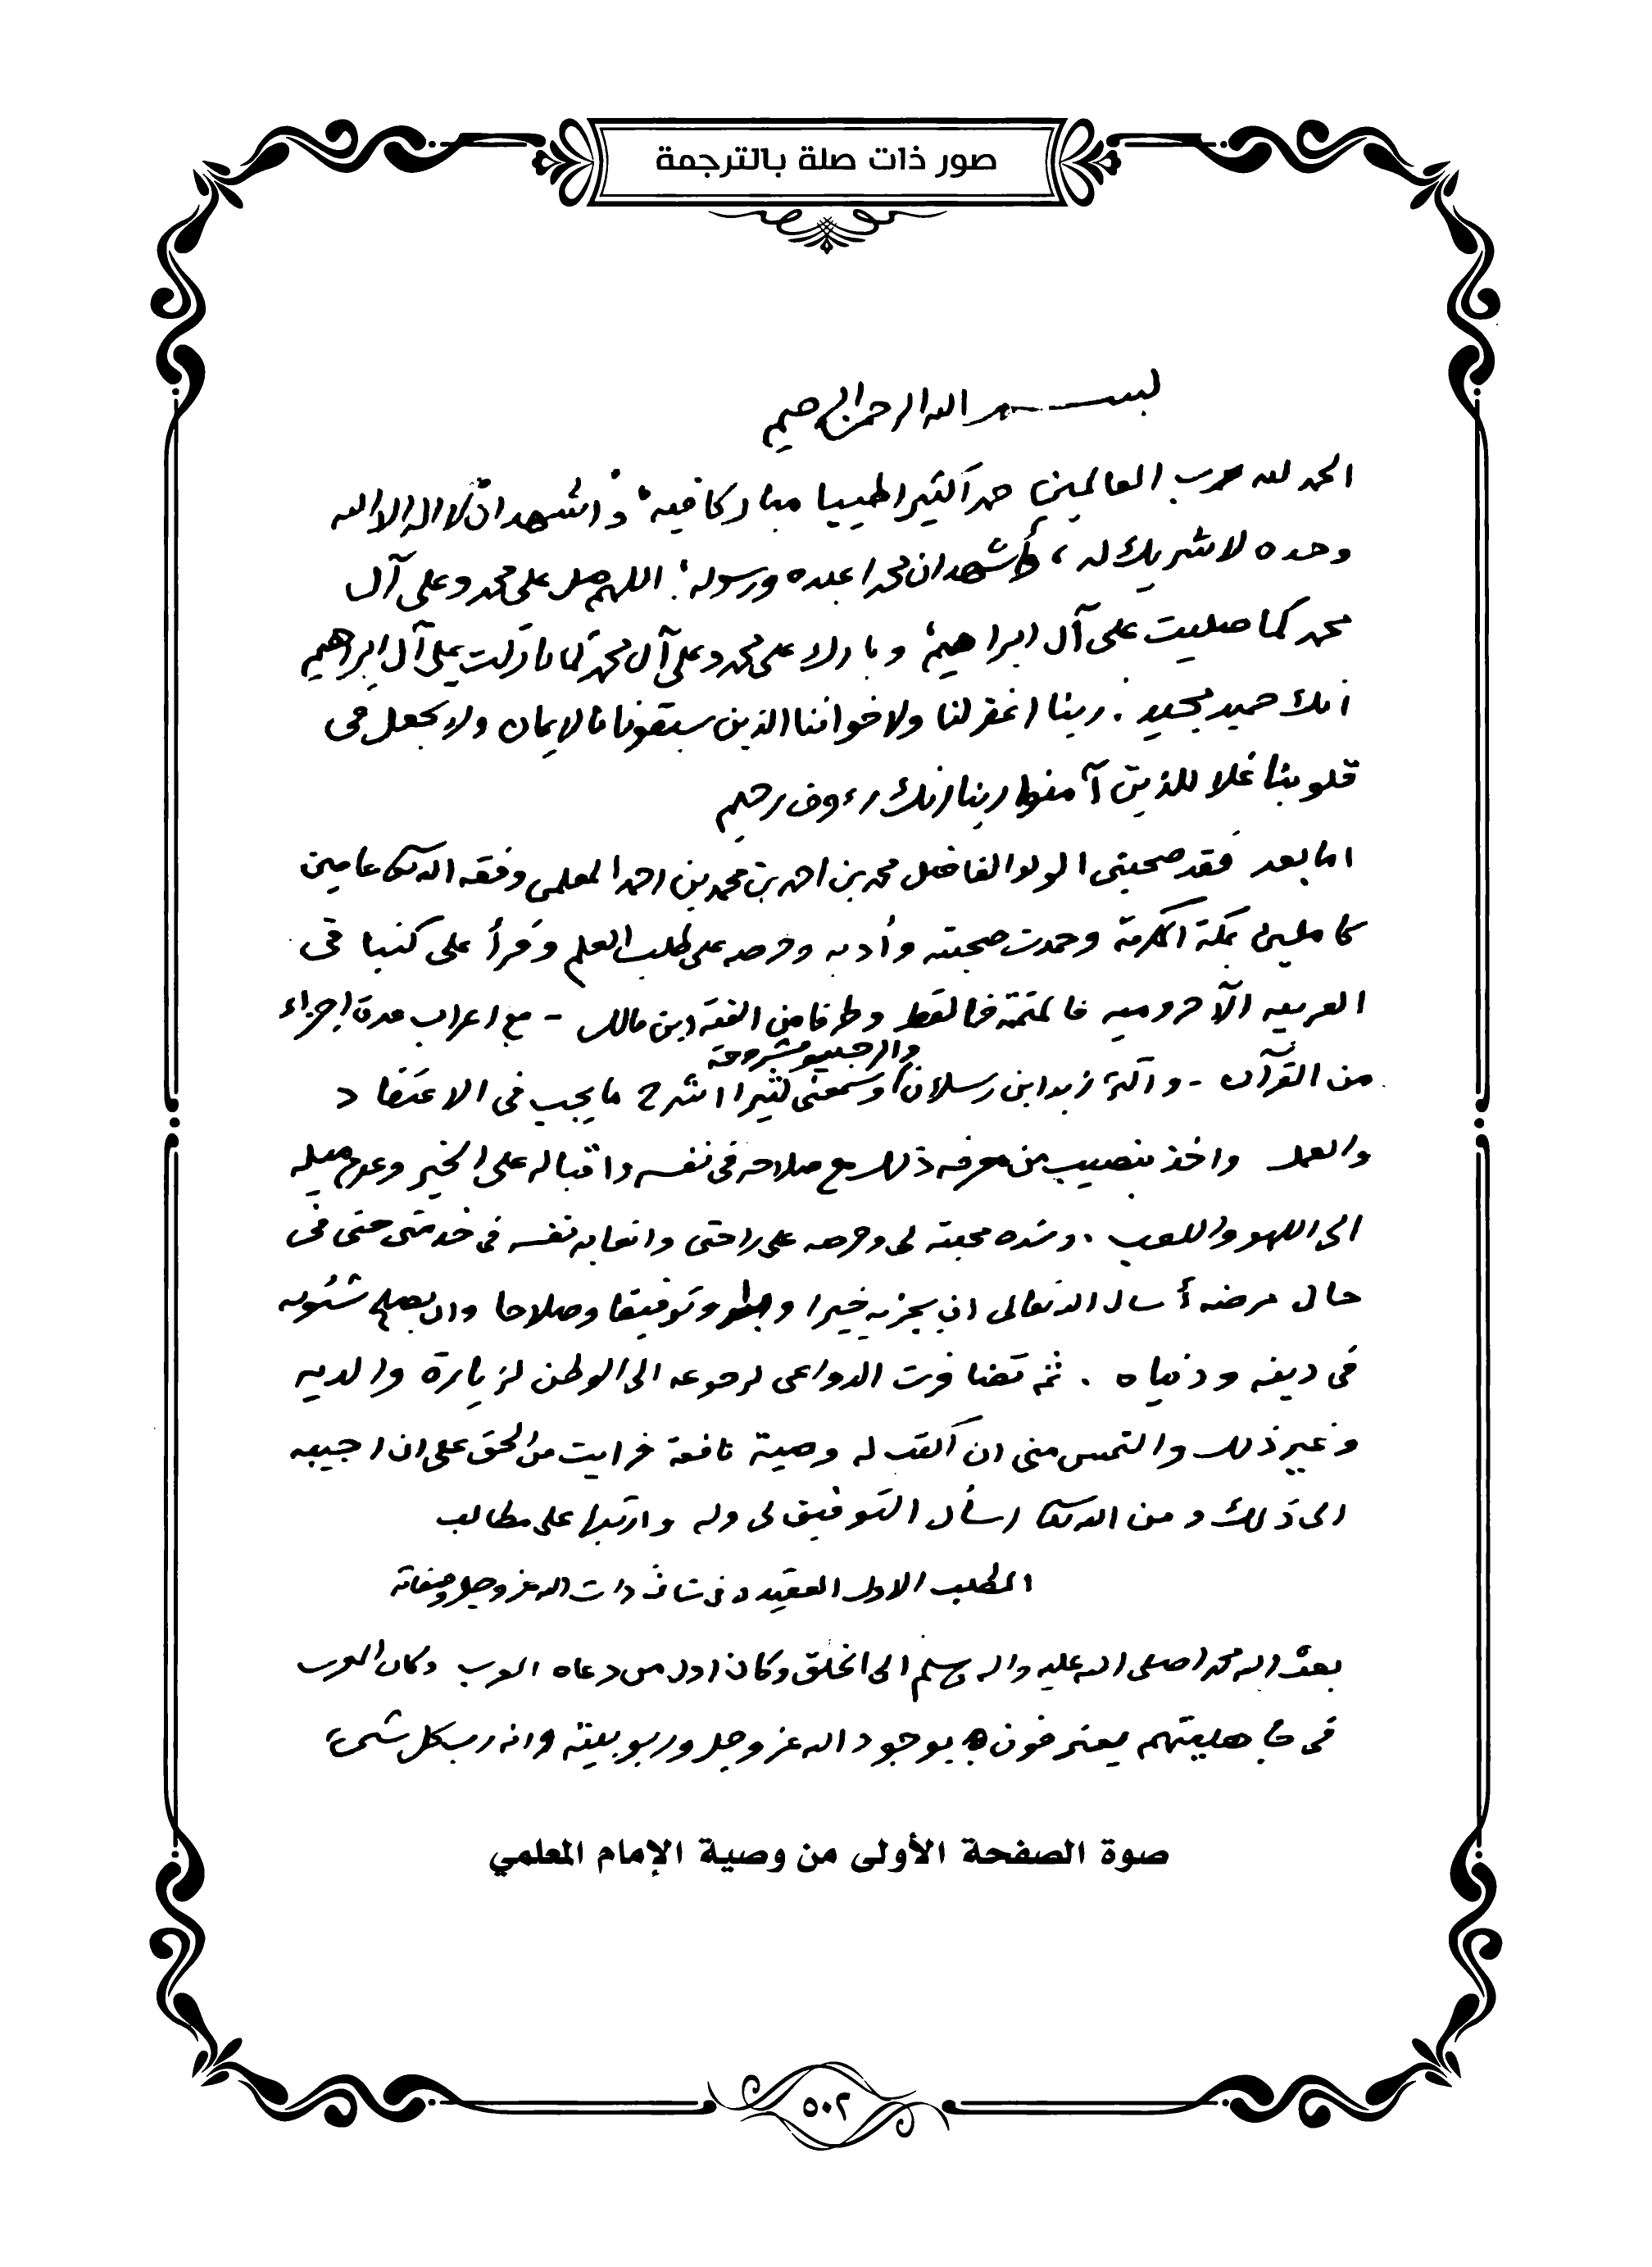 صور ذات صلة بالترجمة
بسم الله الرحمن الرحيم
الحمد لله رب العالمين حمداً كثيرا طيبا مباركا فيه، وأشهد ان لا اله الا الله
وحده لا شريك له، وأشهد ان محمدا عبده ورسوله، اللهم صل على محمد وعلى آل
محمد كما صليت على آل ابراهيم، وبارك على محمد وعلى آل محمد كما باركت على آل ابراهيم
انك حميد مجيد. ربنا اغفر لنا ولاخواننا الذين سبقونا بالايمان ولا تجعل في
قلوبنا غلا للذين آمنوا ربنا إنك رءوف رحيم
اما بعد فقد صحبني الولد الفاضل محمد بن احمد بن محمد بن احمد المعلمي وفقه الله تعالى عامين
كاملين بمكة المكرمة وحمدت صحبته وأدبه وحرصه على طلب العلم وقرأ علي كتبا في
العربيه الآجروميه فالمتممة فالقطر وطرفا من الفية ابن مالك - مع اعراب عدة اجزاء
والرحبيه مشروحة
من القرآن - وآكثر زبد ابن رسلان وسمعني كثيرا اشرح ما يجب في الاعتقاد
والعمل واخذ بنصيب من معرفه ذلك مع صلاحه في نفسه واقباله على الخير وعدم ميله
الى اللهو واللعب. وشده محبته لي وحرصه على راحتي واتعابه نفسه في خدمتي حتى في
حال مرضه أسال الله تعالى ان يجزيه خيرا وتوفيقا وصلاحا وان يصلح شئونه
في دينه ودنياه. ثم تضافرت الدواعي لرجوعه الى الوطن لزيارة والديه
وغير ذلك والتمس مني ان اكتب له وصية نافعة فرايت من الحق علي ان اجيبه
الى ذلك ومن الله تعالى اسأل التوفيق لي وله وارتبها على مطالب
المطلب الاول العقيده في شان ذات الله عز وجل وصفاته
بعث الله محمدا صلى الله عليه واله وسلم الى الخلق وكان اول من دعاه العرب وكان العرب
في جاهليتهم يعترفون بوجود الله عز وجل وربوبيته وانه رب كل شيء
صوة الصفحة الأولى من وصية الإمام المعلمي
٥٠٢